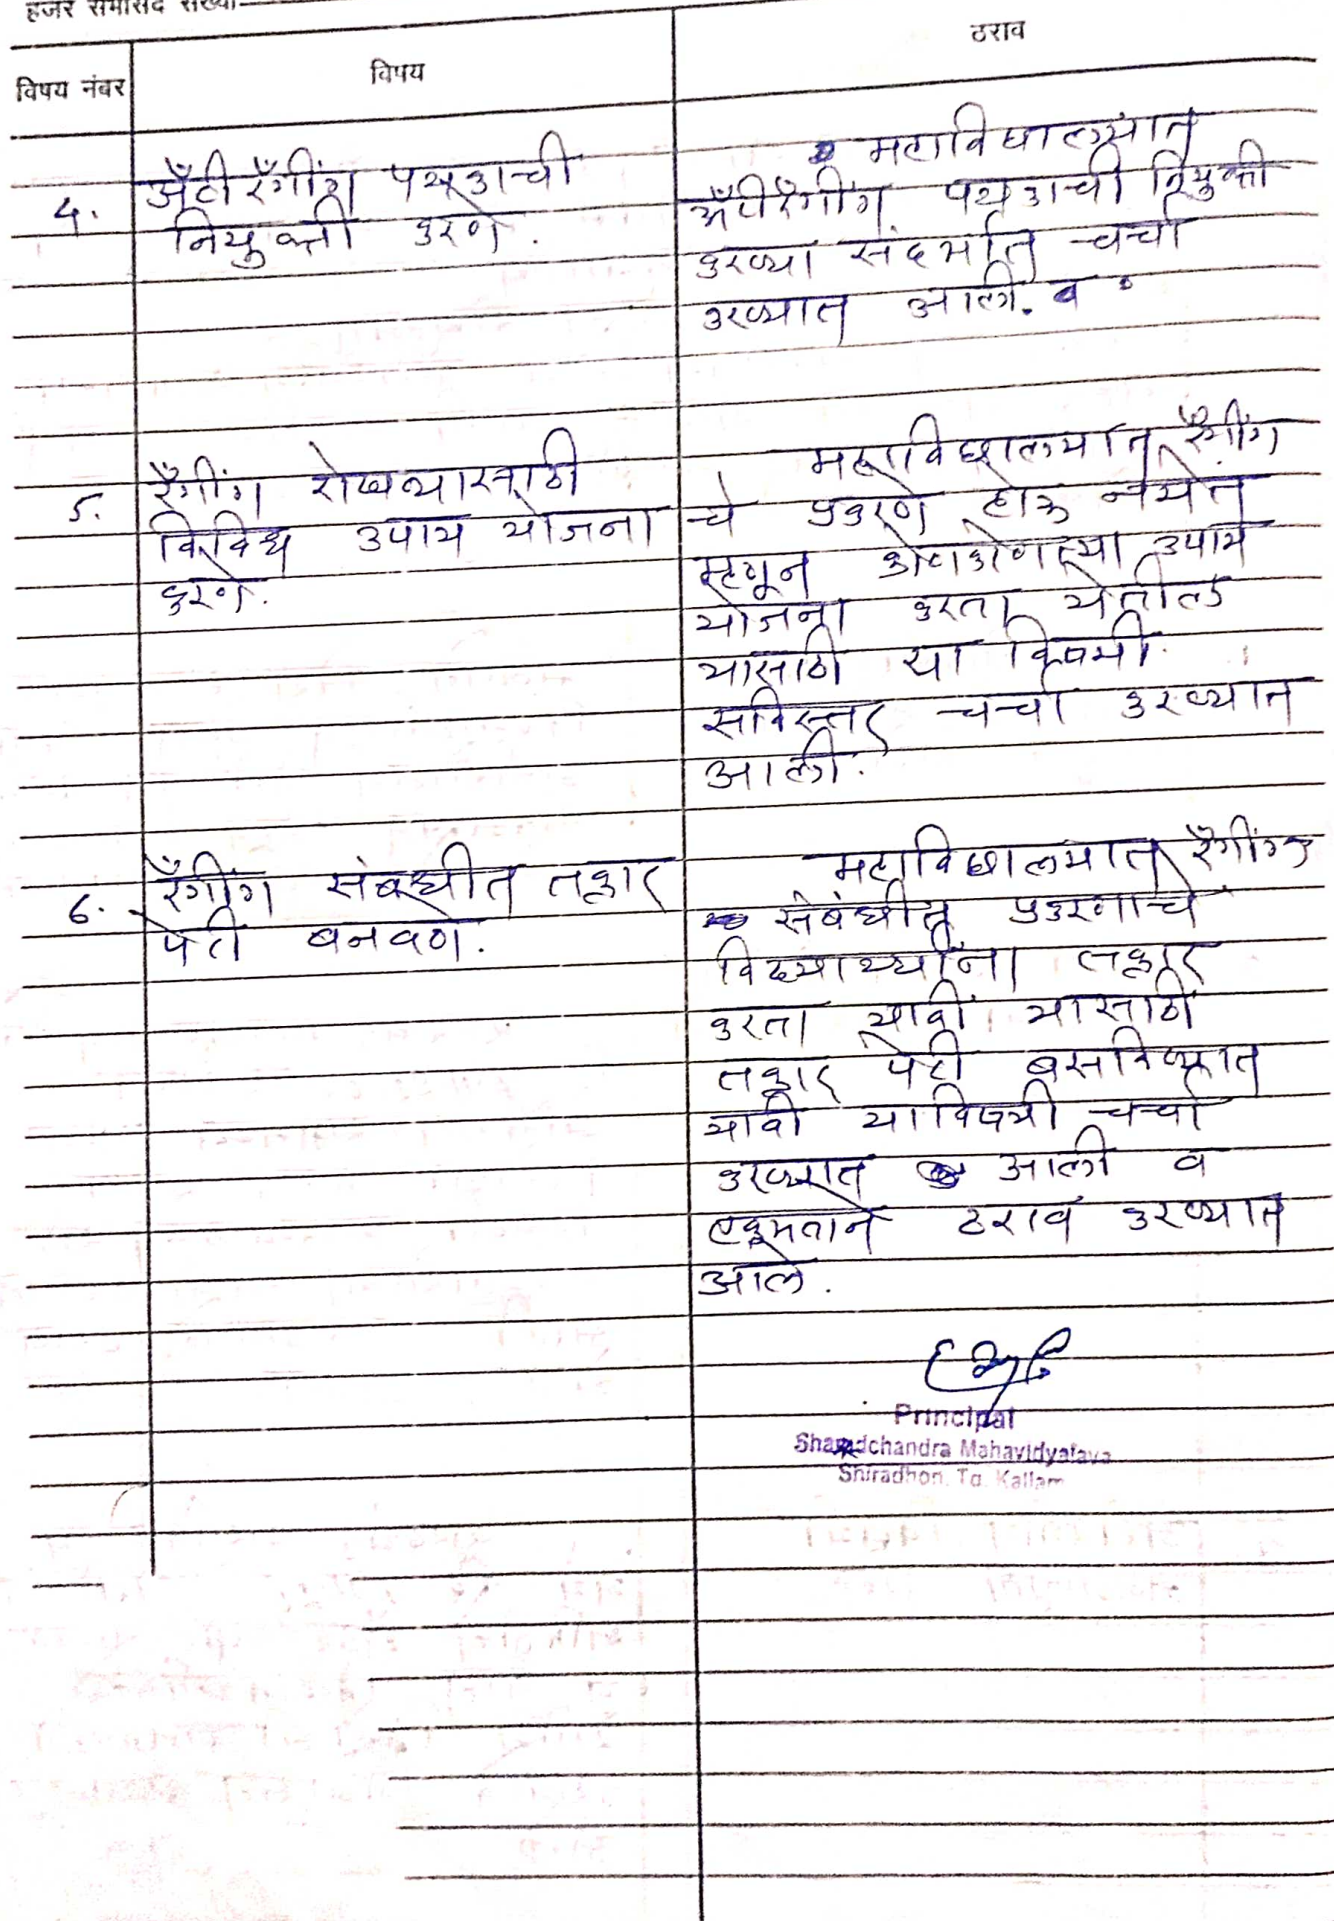 हजर सभासद संख्या
विषय नंबर
विषय
ठराव
4.
अँटी रॅगींग पथकाची
नियुक्ती करणे.
महाविद्यालयात
अँटीरॅगींग पथकाची नियुक्ती
करण्या संदर्भात चर्चा
करण्यात आली. व
5.
रॅगींग रोखण्यासाठी
विविध उपाय योजना
करणे.
महाविद्यालयात रॅगींग
चे प्रकरणे होऊ नयेत
म्हणून कोणकोणत्या उपाय
योजना करता येतील
यासाठी या विषयी
सविस्तर चर्चा करण्यात
आली.
6.
रॅगींग संबधीत तक्रार
पेटी बनवणे.
महाविद्यालयात रॅगींग
संबंधीत प्रकरणाचे
विद्यार्थ्यांना तक्रार
करता यावी यासाठी
तक्रार पेटी बसविण्यात
यावी याविषयी चर्चा
करण्यात आली व
एकमताने ठराव करण्यात
आले.
Principal
Sharadchandra Mahavidyalaya
Shiradhon. Tq. Kallam